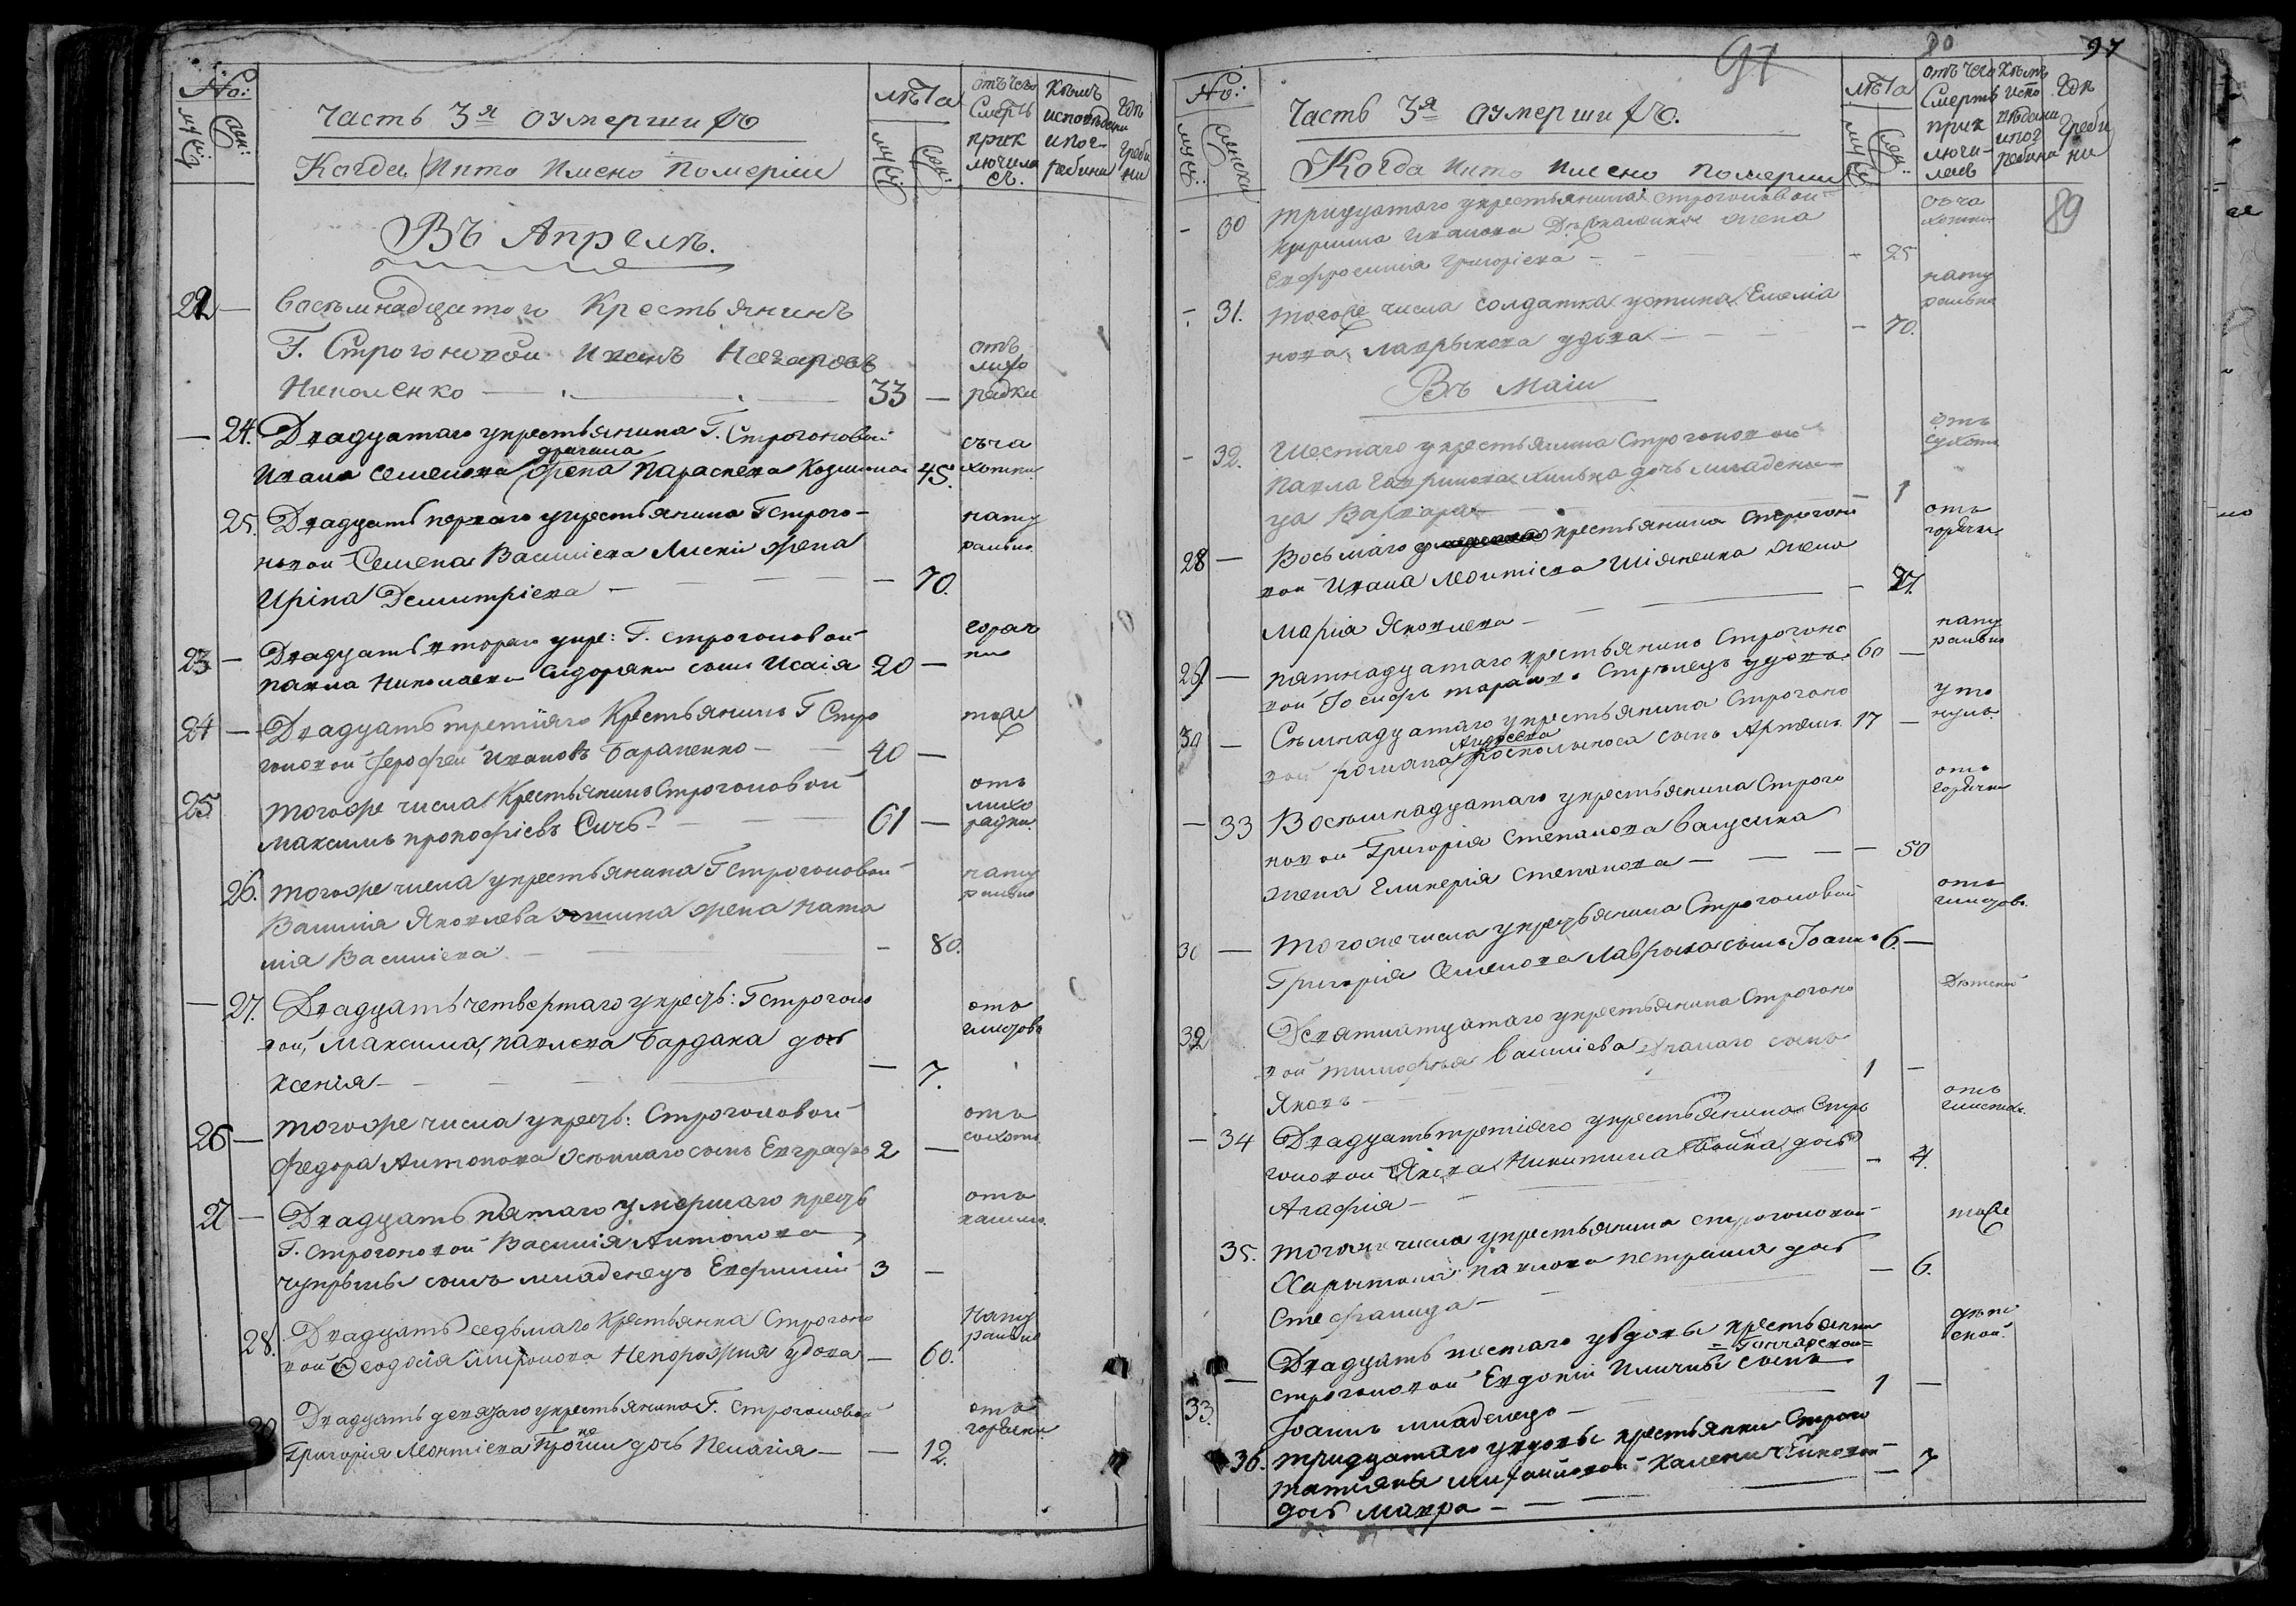 No:
муж:
жен:
Часть 3я оумершихъ
Когда, икто имено померли
лѣта
муж:
жен:
отъ чего
смерть
прик
лючила
съ.
кѣмъ
исповѣдани
ипог
ребини
гдѣ
греби
ни
Въ Апрелѣ.
22 — Восѣмнадцатого Крестьянинъ
Г. Строгоновой Иванъ Назаровъ
Николенко — 33 —
отъ
лихо
радки
— 24. Двадцатаго укрестьянина Г. Строгоновой
Ивана Семенова жена Параскева Козмина 45.
съча
хотки
25. Двадцать перваго укрестьянина Г Строго-
новой Семена Василіева жена
Ирина Демитріева — — 70.
нату
рально
23 — Двадцать втораго укре: Г. Строгоновой
Павла Николаева Сидоряки сынъ Исаія 20 —
горяч
ки
24 — Двадцать третіяго Крестьянинъ Г Стро
гоновой Ивановъ Бараненко — 40 —
тоже
25 Тогожре числа Крестьянинъ Строгоновой
Максимъ Прокофіевъ Сичь — 61 —
отъ
лихо
радки.
26. Тогоже числа укрестьянина Г Строгоновой
Василія Яковлева жена Ната
лія Василіева — — 80.
нату
рально
— 27. Двадцать четвертаго укресть: Г Строгоно
вой, Максима, Павлова Бардака дочь
Ксенія — — 7.
отъ
глистовъ
26 — Тогоже числа укресть: Строгоновой
Федора Антонова сынъ Евграфъ 2 —
отъ
27 — Двадцать пятаго умершаго кресть
Г. Строгоновой Василія Антонова
Чупрыны сынъ младенецъ Евфимій 3 —
отъ
кашлю.
28. Двадцать седьмаго Крестьянка Строгоно
вой Феодосія Миронова вдова — 60.
Нату
рально
29 Двадцать девятаго укрестьянина Г. Строгоновой
Григорія Леонтіева дочь Пелагія — — 12.
отъ
горячки
97
80
97
No:
муж:
женска
Часть 3я оумершихъ.
Когда икто имено померли
лѣта
муж
жен:
отъ чего
смерть
прик
лючи-
лась
кѣмъ
испо
вѣдани
ипог
ребини
гдѣ
греби
ни
89
- 30 Тридцатаго укрестьянина Строгоновой
Кирила Иванова жена
Евфросинія Григоріева — - 25
съча
хотки
- 31. Тогоже числа солдатка Устина Емеліа
нова, Лаврыкова удова — - 70.
нату
рально
Въ Маіи
- 32. Шестаго укрестьянина Строгоновой
Павла Гаврилова дочь младени
ца Варвара — 1
отъ
сухоты
28 — Восьмаго крестьянина Строгоно
вой Ивана Леонтіева жена
Марія Яковлева — 27.
отъ
горячки
29 — Пятнадцатаго крестьянинъ Строгоно
вой Іосифъ Стрѣлецъ удовъ 60 —
нату
рально
30 — Сѣмнадцатаго укрестьянина Строгоно
вой Романа Андреева сынъ Артемъ 17 —
уто
нулъ.
— 33 Восѣмнадцатаго укрестьянина Строго
новой Григорія Степанова
жена Гликерія Степанова — — 50
отъ
горячки
— Тогоже числа укрестьянина Строгоновой
Григорія Семенова Лаврыка сынъ Іоаннъ 6. —
отъ
глистовъ.
32 Девятнатцатаго укрестьянина Строгоно
вой Тимофея Василіева сынъ
Яковъ — 1 —
Дѣтской
— 34 Двадцать третіяго укрестьянина Стро
гоновой Никитина дочь
Агафія — — 4.
отъ
35. Тогоже числа укрестьянина Строгоновой
Харытона Павлова дочь
Стефанида — — 6.
тоже
— Двадцать шестаго увдовы крестьянки
=Гончарской=
Строгоновой Евдокіи сынъ
33. Іоаннъ младенецъ — 1 —
дѣт
ской.
36. Тридцатаго увдовы крестьянки Строго
Татіяны Михайловой
дочь Мавра — — 7